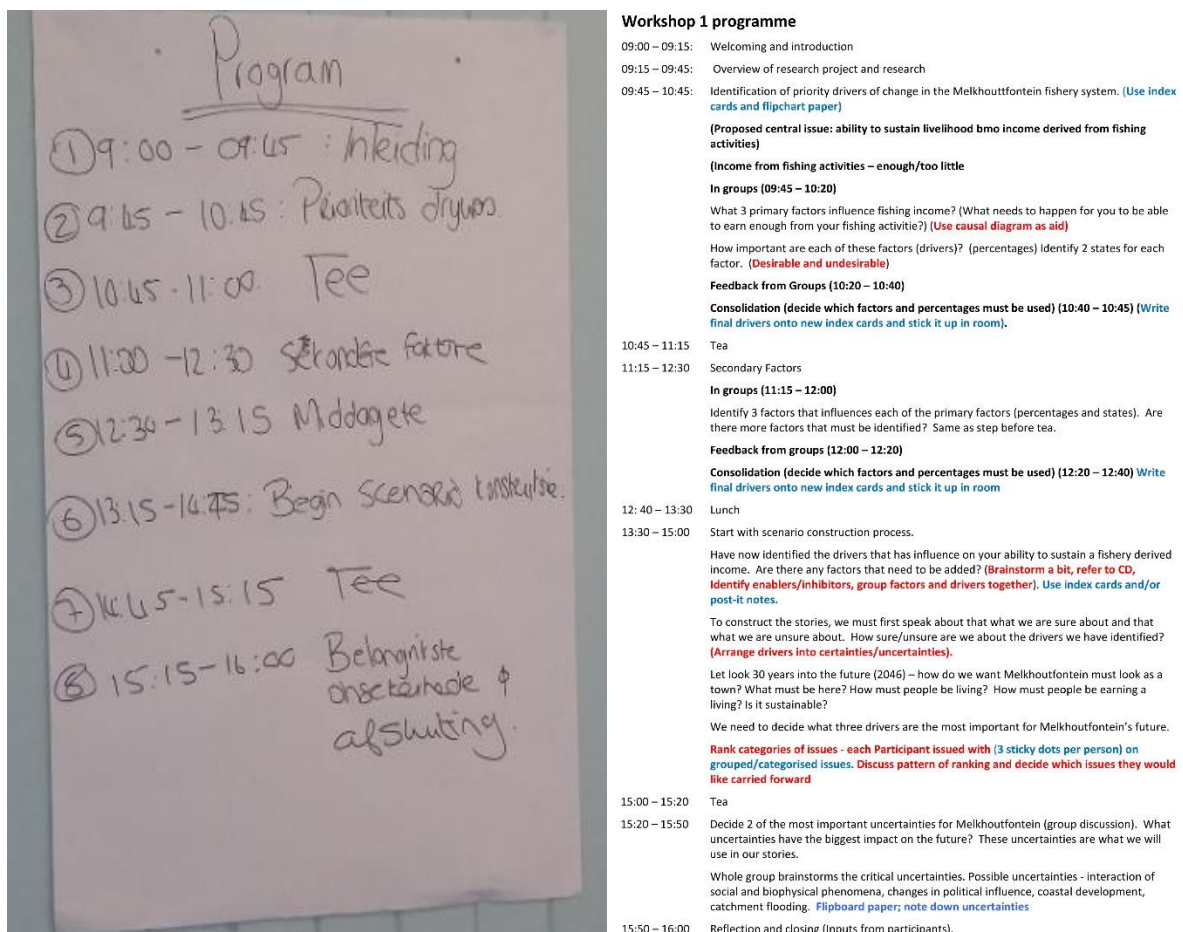 Program
① 9:00 – 09:45 : Inleiding
② 9:45 – 10:45 : Prioriteits drywers.
③ 10:45 - 11:00. Tee
④ 11:00 – 12:30 Sekondêre faktore
⑤ 12:30 – 13:15 Middagete
⑥ 13:15 – 14:45 : Begin scenario konstruksie.
⑦ 14:45 – 15:15 Tee
⑧ 15:15 – 16:00 Belangrikste
onsekerhede &
afsluiting.
Workshop 1 programme
09:00 – 09:15: Welcoming and introduction
09:15 – 09:45: Overview of research project and research
09:45 – 10:45: Identification of priority drivers of change in the Melkhouttfontein fishery system. (Use index
cards and flipchart paper)
(Proposed central issue: ability to sustain livelihood bmo income derived from fishing
activities)
(Income from fishing activities – enough/too little
In groups (09:45 – 10:20)
What 3 primary factors influence fishing income? (What needs to happen for you to be able
to earn enough from your fishing activitie?) (Use causal diagram as aid)
How important are each of these factors (drivers)? (percentages) Identify 2 states for each
factor. (Desirable and undesirable)
Feedback from Groups (10:20 – 10:40)
Consolidation (decide which factors and percentages must be used) (10:40 – 10:45) (Write
final drivers onto new index cards and stick it up in room).
10:45 – 11:15 Tea
11:15 – 12:30 Secondary Factors
In groups (11:15 – 12:00)
Identify 3 factors that influences each of the primary factors (percentages and states). Are
there more factors that must be identified? Same as step before tea.
Feedback from groups (12:00 – 12:20)
Consolidation (decide which factors and percentages must be used) (12:20 – 12:40) Write
final drivers onto new index cards and stick it up in room
12: 40 – 13:30 Lunch
13:30 – 15:00 Start with scenario construction process.
Have now identified the drivers that has influence on your ability to sustain a fishery derived
income. Are there any factors that need to be added? (Brainstorm a bit, refer to CD,
Identify enablers/inhibitors, group factors and drivers together). Use index cards and/or
post-it notes.
To construct the stories, we must first speak about that what we are sure about and that
what we are unsure about. How sure/unsure are we about the drivers we have identified?
(Arrange drivers into certainties/uncertainties).
Let look 30 years into the future (2046) – how do we want Melkhoutfontein must look as a
town? What must be here? How must people be living? How must people be earning a
living? Is it sustainable?
We need to decide what three drivers are the most important for Melkhoutfontein's future.
Rank categories of issues - each Participant issued with (3 sticky dots per person) on
grouped/categorised issues. Discuss pattern of ranking and decide which issues they would
like carried forward
15:00 – 15:20 Tea
15:20 – 15:50 Decide 2 of the most important uncertainties for Melkhoutfontein (group discussion). What
uncertainties have the biggest impact on the future? These uncertainties are what we will
use in our stories.
Whole group brainstorms the critical uncertainties. Possible uncertainties - interaction of
social and biophysical phenomena, changes in political influence, coastal development,
catchment flooding. Flipboard paper; note down uncertainties
15:50 – 16:00 Reflection and closing (Inputs from participants).